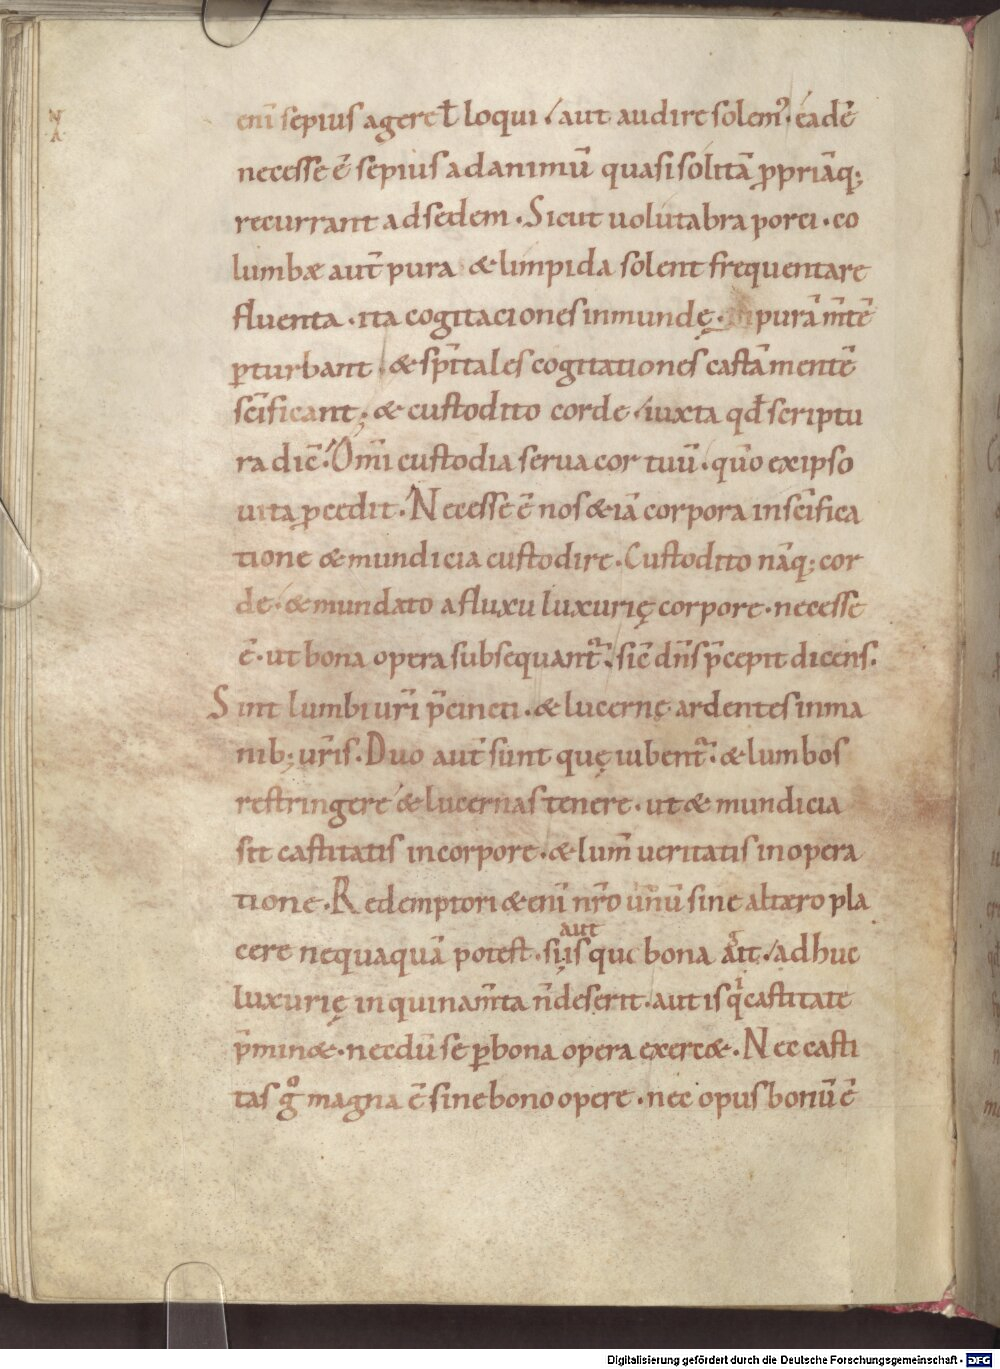 N
A
enī sepius agere ł loqui / aut audire solem᷒ · eadē
necesse ē sepius ad animū quasi solitā ꝓpriāq;
recurrant ad sedem · Sicut uolutabra porci · co
lumbæ aut̄ pura & limpida solent frequentare
fluenta · ita cogitaciones inmundę · inpurā m̄tē
ꝑturbant · & sp̄itales cogitationes castā mentē
sc̄ificant; & custodito corde / iuxta qđ scriptu
ra dic̄ · Om̄i custodia serua cor tuū · qūo ex ipso
uita ꝓcedit · Necesse ē nos & iā corpora in sc̄ifica
tione & mundicia custodire · Custodito nāq; cor
de · & mundato a fluxu luxurię corpore · necesse
ē · ut bona opera subsequant᷑ · sic̄ dn̄s p̄cepit dicens ·
Sint lumbi ur̄i p̄cincti · & lucernę ardentes in ma
nib; ur̄is · Duo aut̄ sunt quę iubent᷑ · & lumbos
restringere & lucernas tenere · ut & mundicia
sit castitatis in corpore · & lum̄ ueritatis in opera
tione · Redemptori & enī nr̄o unū sine altæro pla
cere nequaquā potest · si is aut que bona aͣit · / adhuc
luxurię inquinam̄ta n̄ deserit · aut is qⁱ castitate
p̄min& · necdū se ꝑ bona opera exerc& · Nec casti
tas gͦ magna ē sine bono opere · nec opus bonū ē
Digitalisierung gefördert durch die Deutsche Forschungsgemeinschaft - DFG